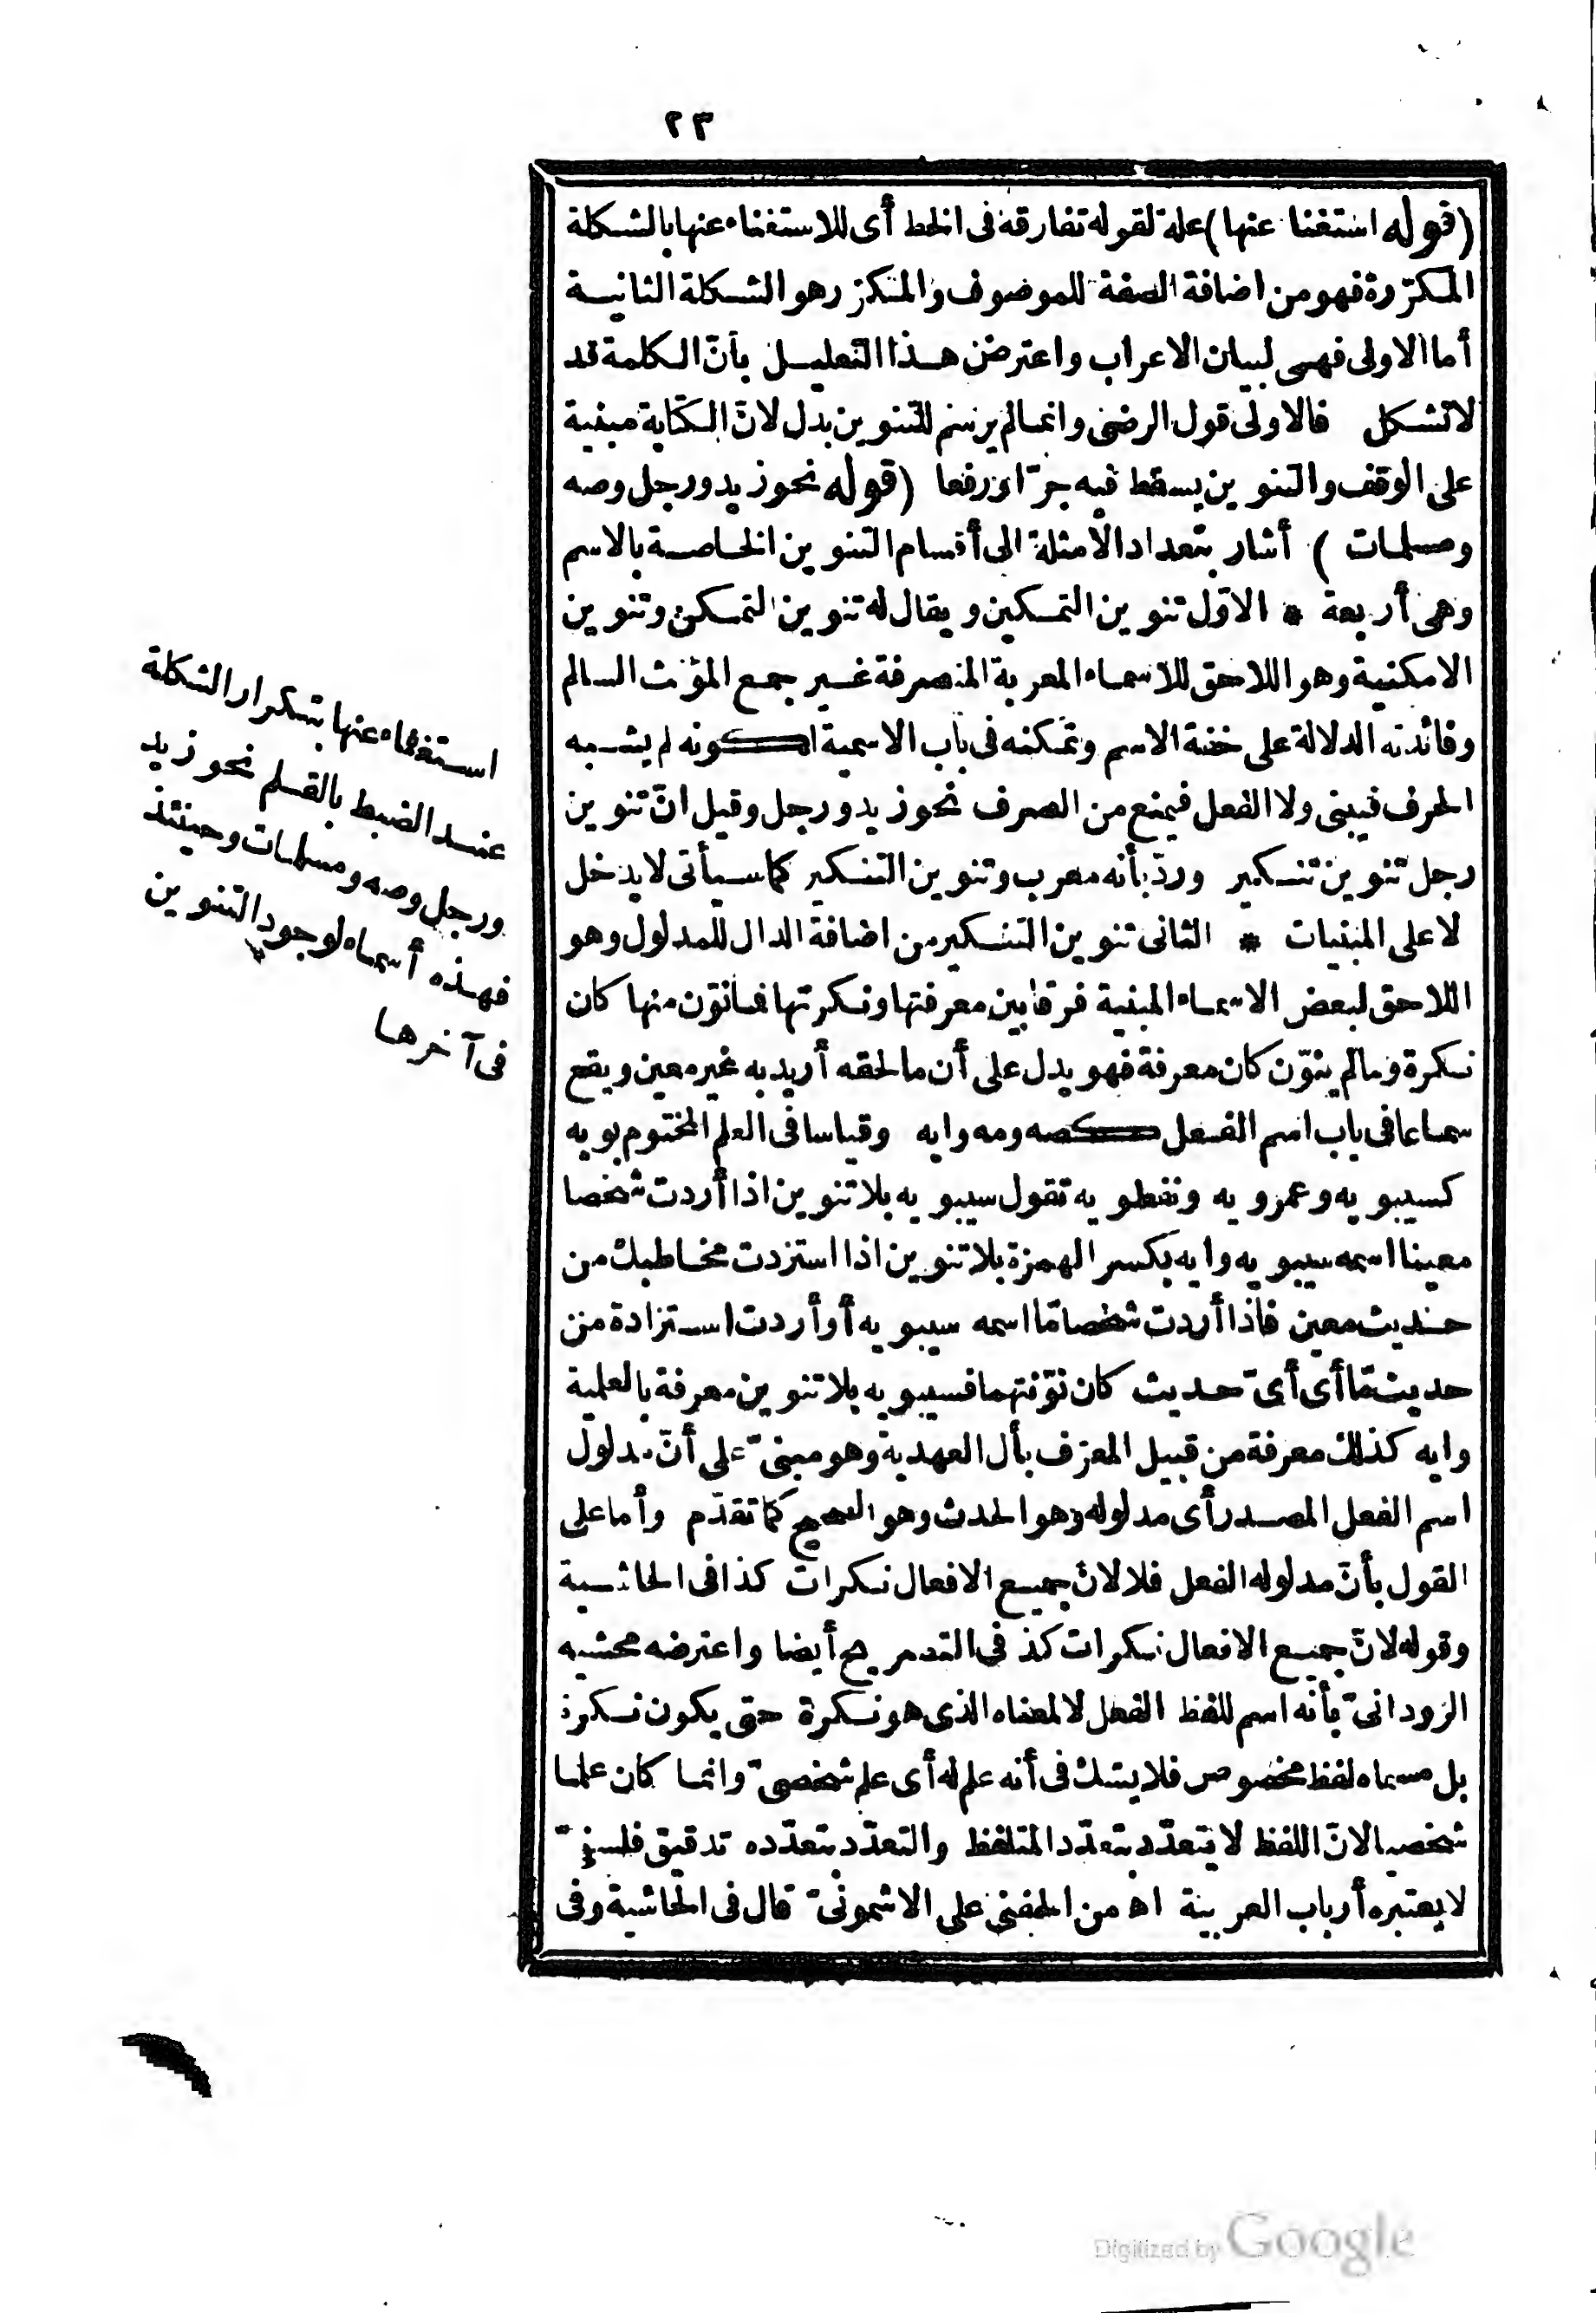 ٢٣
(قوله استغنا عنها) علة لقوله تفارقة فى الخط أى للاستغناء عنها بالشكلة
المكرّرة فهو من اضافة الصفة للموصوف والمتكرّر هو الشكلة الثانية
أما الاولى فهى لبيان الاعراب واعترض هذا التعليل بأنّ الكلمة قد
لا تشكل فالاولى قول الرضى وانما لم يرسم للتنوين بدل لانّ الكتابة مبنية
على الوقف والتنوين يسقط فيه جرّا ورفعا (قوله نحو زيد ورجل وصه
ومسلمات) أشار بتعداد الامثلة الى أقسام التنوين الخاصة بالاسم
وهى أربعة * الاوّل تنوين التمكين ويقال له تنوين التمكن وتنوين
الامكنية وهو اللاحق للاسماء المعربة المنصرفة غير جمع المؤنث السالم
وفائدته الدلالة على خفة الاسم وتمكنه فى باب الاسمية لكونه لم يشبه
الحرف فيبنى ولا الفعل فيمنع من الصرف نحو زيد ورجل وقيل انّ تنوين
رجل تنوين تنكير وردّ بأنه معرب وتنوين التنكير كما سيأتى لا يدخل
لا على المبنيات * الثانى تنوين التنكير من اضافة الدال للمدلول وهو
اللاحق لبعض الاسماء المبنية فرقا بين معرفتها ونكرتها فما نوّن منها كان
نكرة وما لم ينوّن كان معرفة فهو يدل على أن ما لحقه أريد به غير معين ويقع
سماعا فى باب اسم الفعل كصه ومه وايه وقياسا فى العلم المختوم بويه
كسيبويه وعمرويه ونفطويه تقول سيبويه بلا تنوين اذا أردت شخصا
معينا اسمه سيبويه وايه بكسر الهمزة بلا تنوين اذا استزدت مخاطبك من
حديث معين فاذا أردت شخصا مّا اسمه سيبويه أو أردت استزادة من
حديث مّا أى أىّ حديث كان نوّنتهما فسيبويه بلا تنوين معرفة بالعلمية
وايه كذلك معرفة من قبيل المعرّف بأل العهدية وهو مبنىّ على أنّ مدلول
اسم الفعل المصدر أى مدلوله وهو الحدث وهو الصحيح كما تقدّم وأما على
القول بأنّ مدلوله الفعل فلا لانّ جميع الافعال نكرات كذا فى الحاشية
وقوله لانّ جميع الافعال نكرات كذ فى التصريح أيضا واعترضه محشيه
الرودانىّ بأنه اسم للفظ الفعل لا لمعناه الذى هو نكرة حتى يكون نكرة
بل مسماه لفظ مخصوص فلا يشك فى أنه علم له أى علم شخصىّ وانما كان علما
شخصيا لانّ اللفظ لا يتعدّد بتعدّد المتلفظ والتعدّد بتعدّده تدقيق فلسفىّ
لا يعتبره أرباب العربية اه من الحفنى على الاشمونىّ قال فى الحاشية وفى
استغناء عنها بتكرار الشكلة
عند الضبط بالقلم نحو زيد
ورجل وصه ومسلمات وحينئذ
فهذه أسماء لوجود التنوين
فى آخرها
Digitized by Google